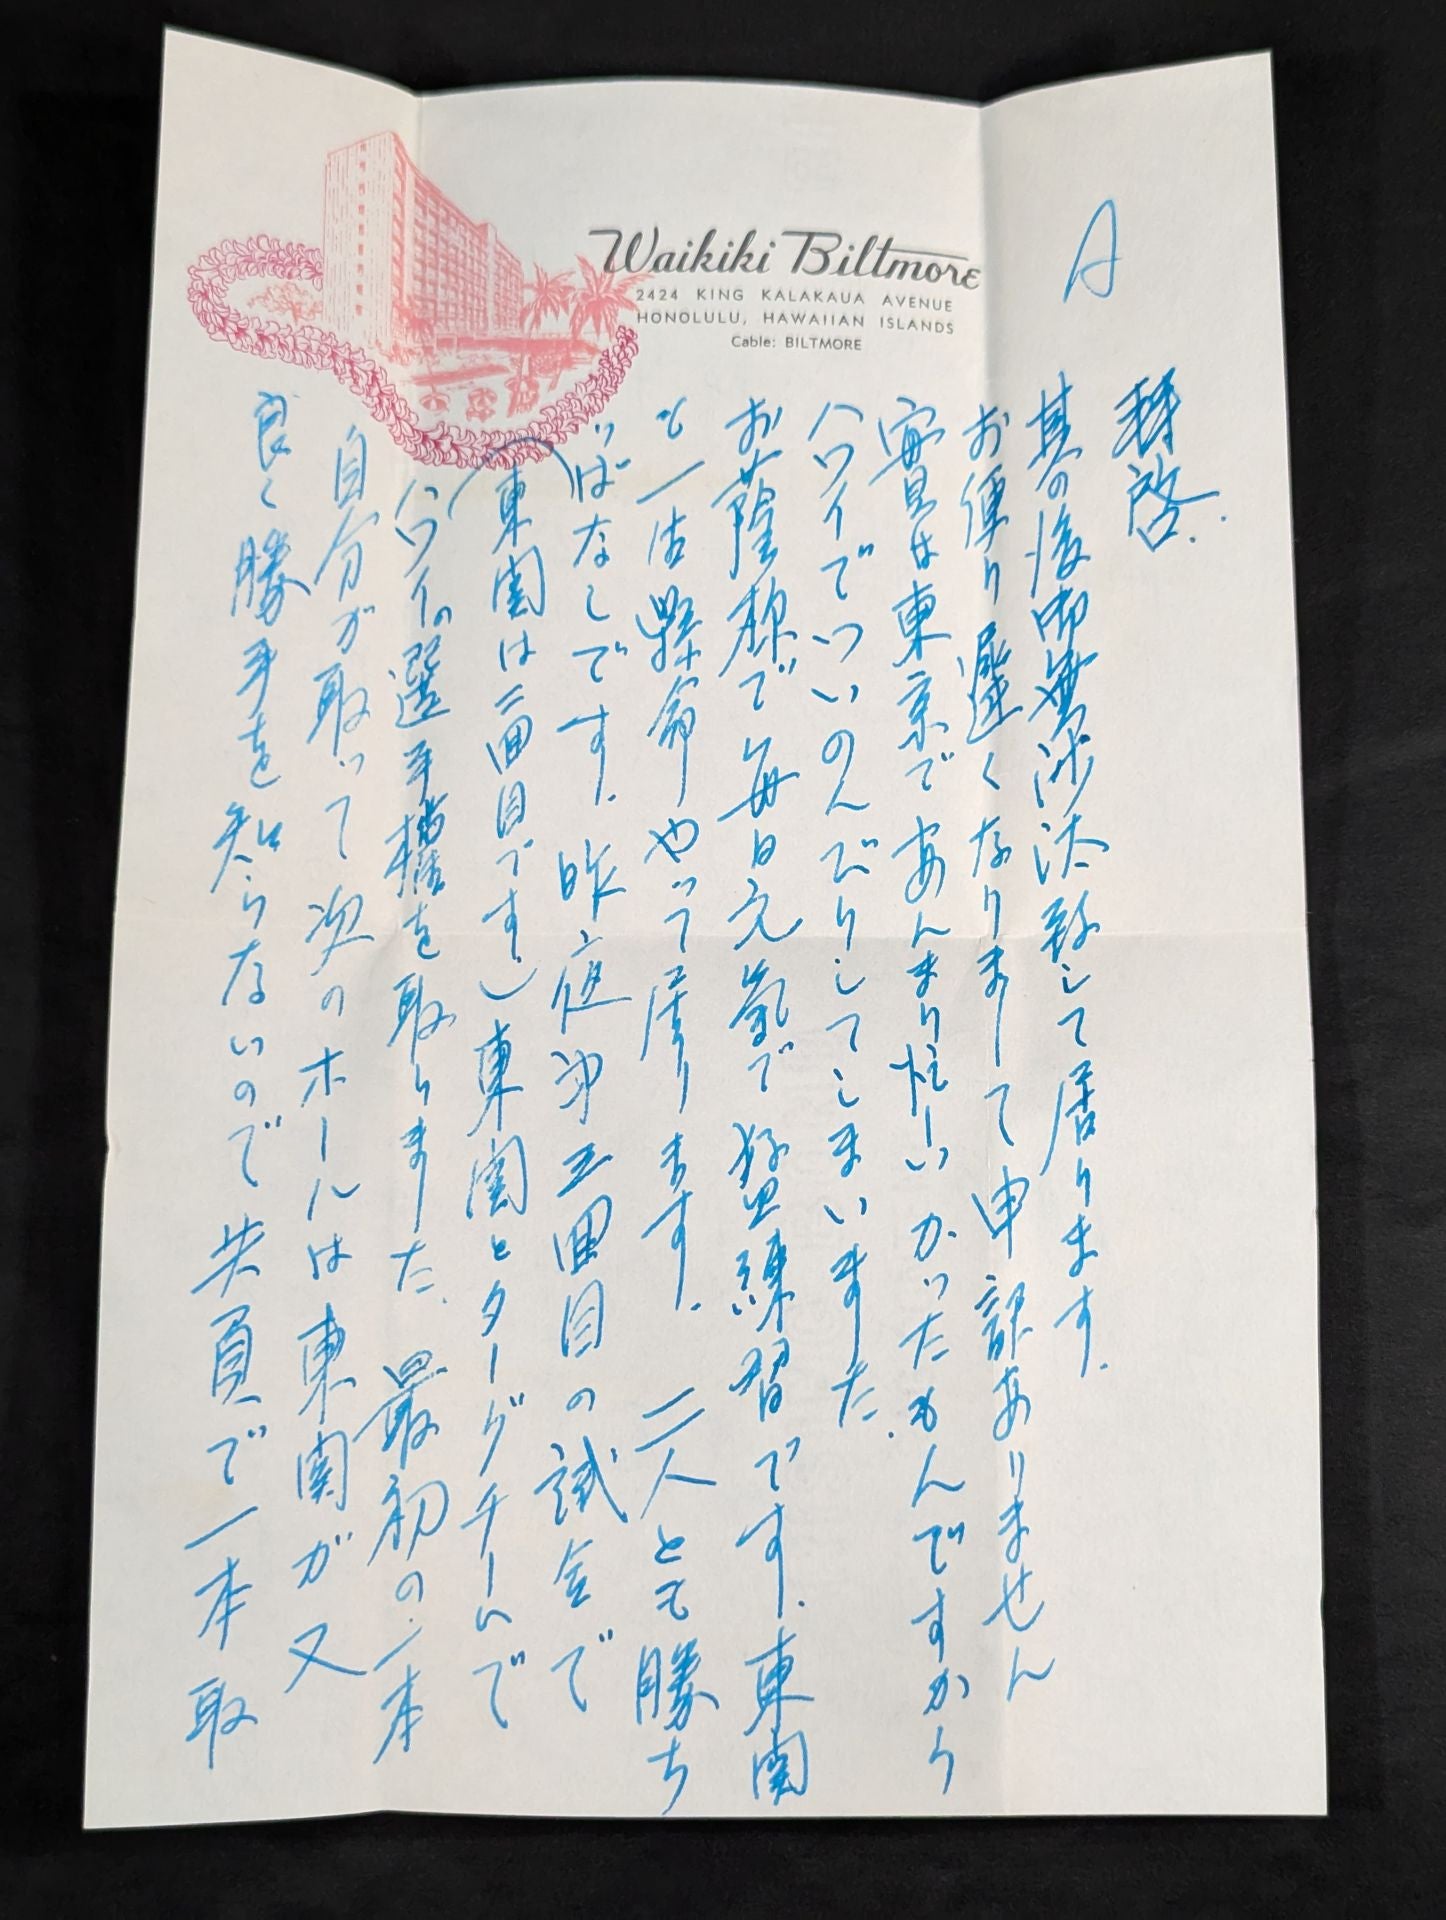 Waikiki Biltmore
2424 KING KALAKAUA AVENUE
HONOLULU, HAWAIIAN ISLANDS
Cable: BILTMORE
A
拝啓.
其の後御無沙汰致して居ります.
お便り遅くなりまして申訳ありません
実は東京であんまり忙しいかったもんですから
ハワイでついのんびりしてしまいました.
お蔭様で毎日元気で猛練習です.東関
と一生懸命やって居ります.二人とも勝ち
っぱなしです.昨夜沖三回目の試合で
(東関は二回目です)東関とタッグチームで
ハワイの選手権を取りました.最初の一本
自分が取って次のホールは東関が又
良く勝手を知らないので失員で一本取